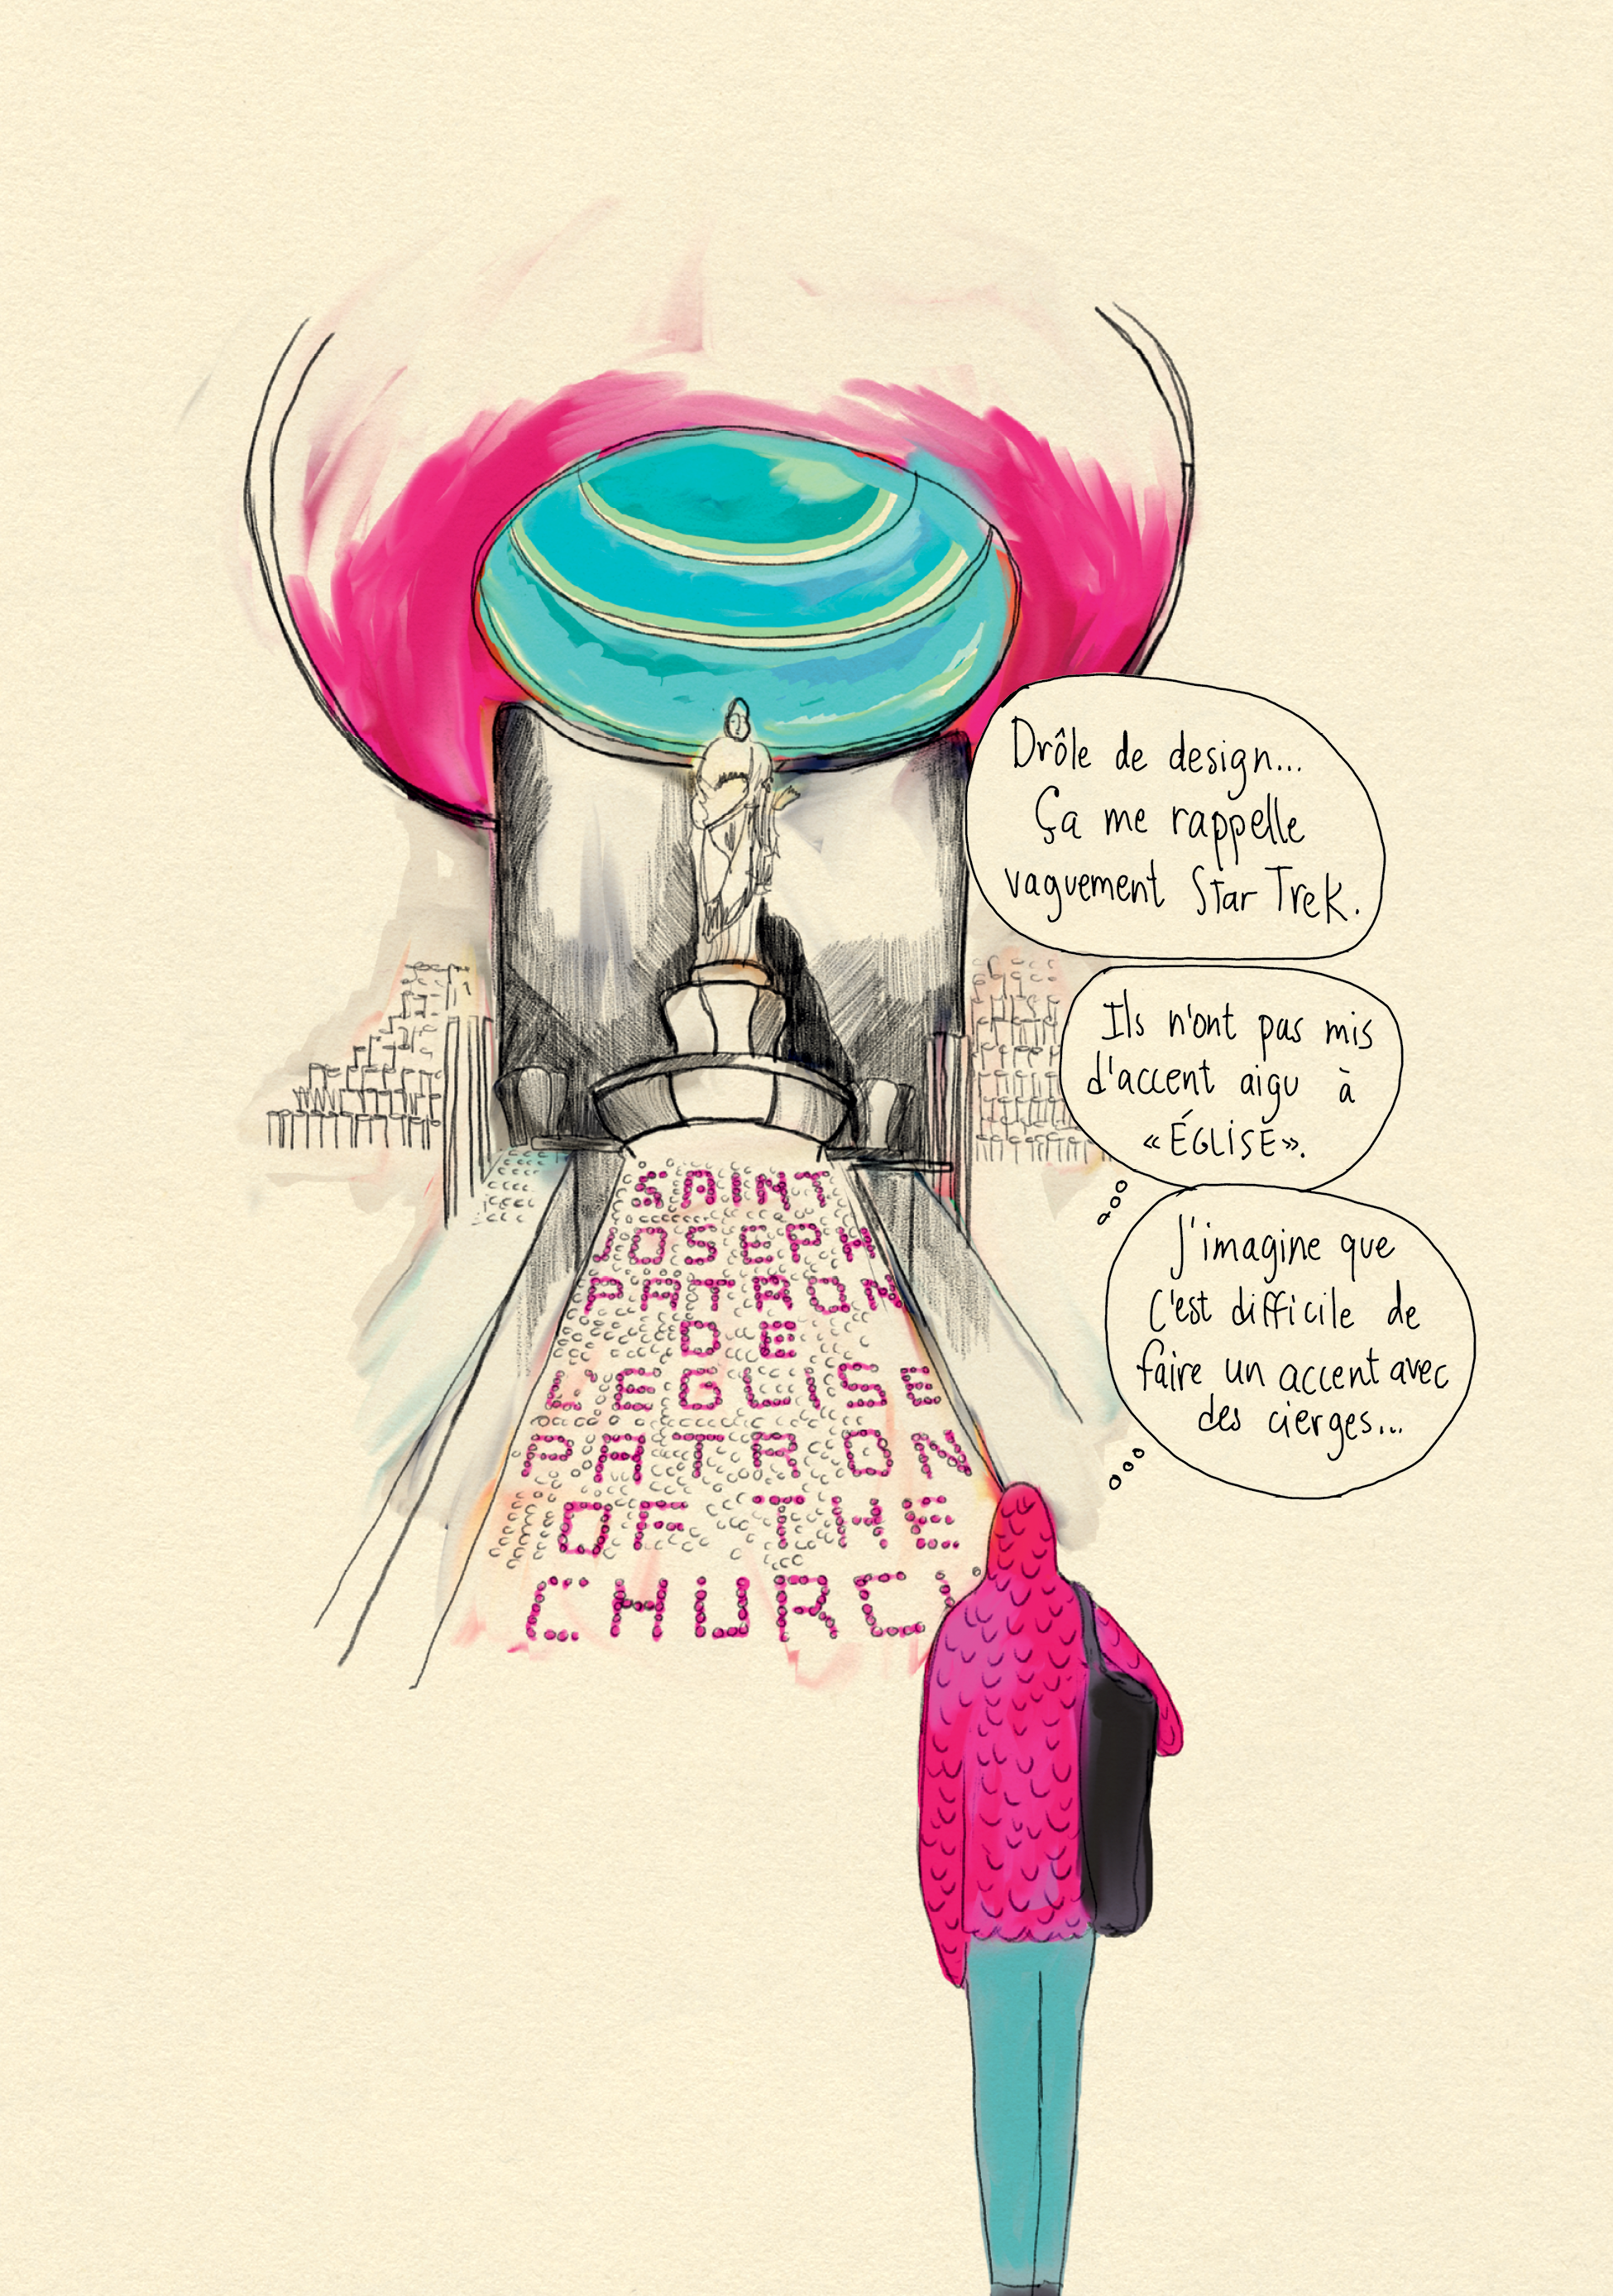 Drôle de design...
Ça me rappelle
vaguement Star Trek.
Ils n'ont pas mis
d'accent aigu à
«ÉGLISE».
J'imagine que
C'est difficile de
faire un accent avec
des cierges...
SAINT
JOSEPH
PATRON
DE
L'EGLISE
PATRON
OF THE
CHURC